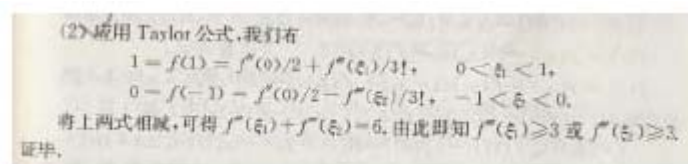 (2) 应用 Taylor 公式,我们有
1 = f(1) = f″(0)/2 + f‴(ξ₁)/3!, 0 < ξ₁ < 1,
0 = f(-1) = f″(0)/2 - f‴(ξ₂)/3!, -1 < ξ₂ < 0.
将上两式相减,可得 f‴(ξ₁) + f‴(ξ₂) = 6. 由此即知 f‴(ξ₁) ≥ 3 或 f‴(ξ₂) ≥ 3.
证毕.